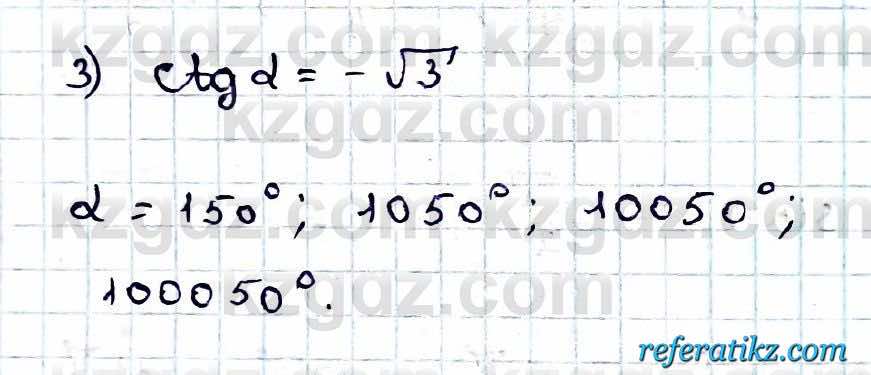 kzgdz.com kzgdz.com
3) ctg α = - √3
kzgdz.com
α = 150°; 1050°; 10050°;
kzgdz.com kzgdz.com
100050°.
kzgdz.com
referatikz.com